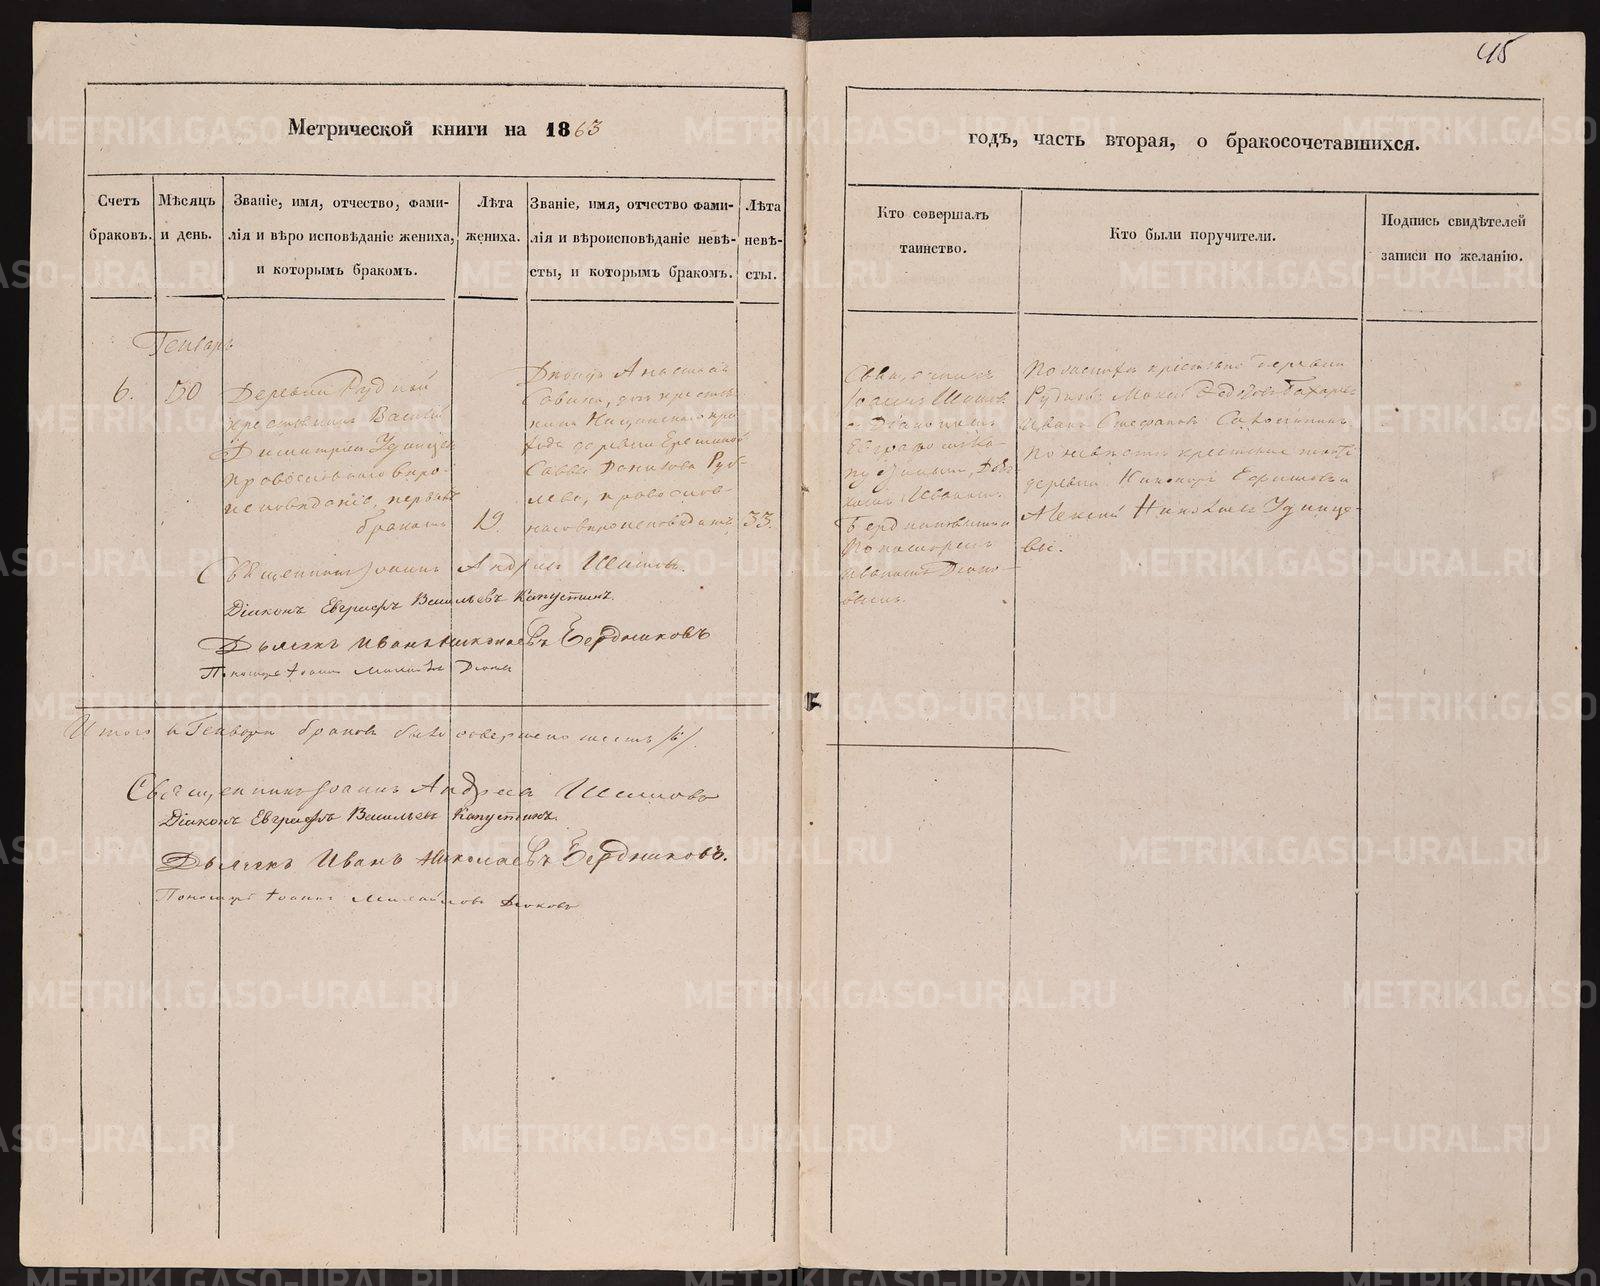 45
Метрической книги на 1863
годъ, часть вторая, о бракосочетавшихся.
Счетъ браковъ.
Мѣсяцъ и день.
Званіе, имя, отчество, фами-
лія и вѣро исповѣданіе жениха,
и которымъ бракомъ.
Лѣта
жениха.
Званіе, имя, отчество фами-
лія и вѣроисповѣданіе невѣ-
сты, и которымъ бракомъ.
Лѣта
невѣ-
сты.
Кто совершалъ
таинство.
Кто были поручители.
Подпись свидѣтелей
записи по желанію.
Генварь
6.
30
Деревни Рудной
крестьянинъ Василій
Димитріевъ
православнаго вѣро-
исповѣданія, первымъ
бракомъ
19.
Дѣвица Анастасія
Савина, дочь крестья-
нина
деревни
Саввы Данилова Руб-
лева, православ-
наго вѣроисповѣданія,
33.
Священникъ
Іоаннъ Шишовъ
съ Діакономъ
Евграфомъ Ка-
пустинымъ, Дьяч-
комъ Иваномъ
Бердниковымъ и
Пономаремъ
Иваномъ Дьяко-
вымъ.
По женихѣ крестьяне деревни
Рудной Мокей Ѳедотовъ
Иванъ Стефановъ
По невѣстѣ крестьяне
деревни Никифоръ
Алексѣй
вы.
Священникъ Іоаннъ Андреевъ Шишовъ.
Діаконъ Евграфъ Васильевъ Капустинъ.
Дьячекъ Иванъ Николаевъ Бердниковъ
Пономарь Іоаннъ Михайловъ Дьяковъ
Итого въ Генварѣ браковъ было совершено шесть /6/.
Священникъ Іоаннъ Андреевъ Шишовъ
Діаконъ Евграфъ Васильевъ Капустинъ.
Дьячекъ Иванъ Николаевъ Бердниковъ.
Пономарь Іоаннъ Михайловъ Дьяковъ
METRIKI.GASO-URAL.RU